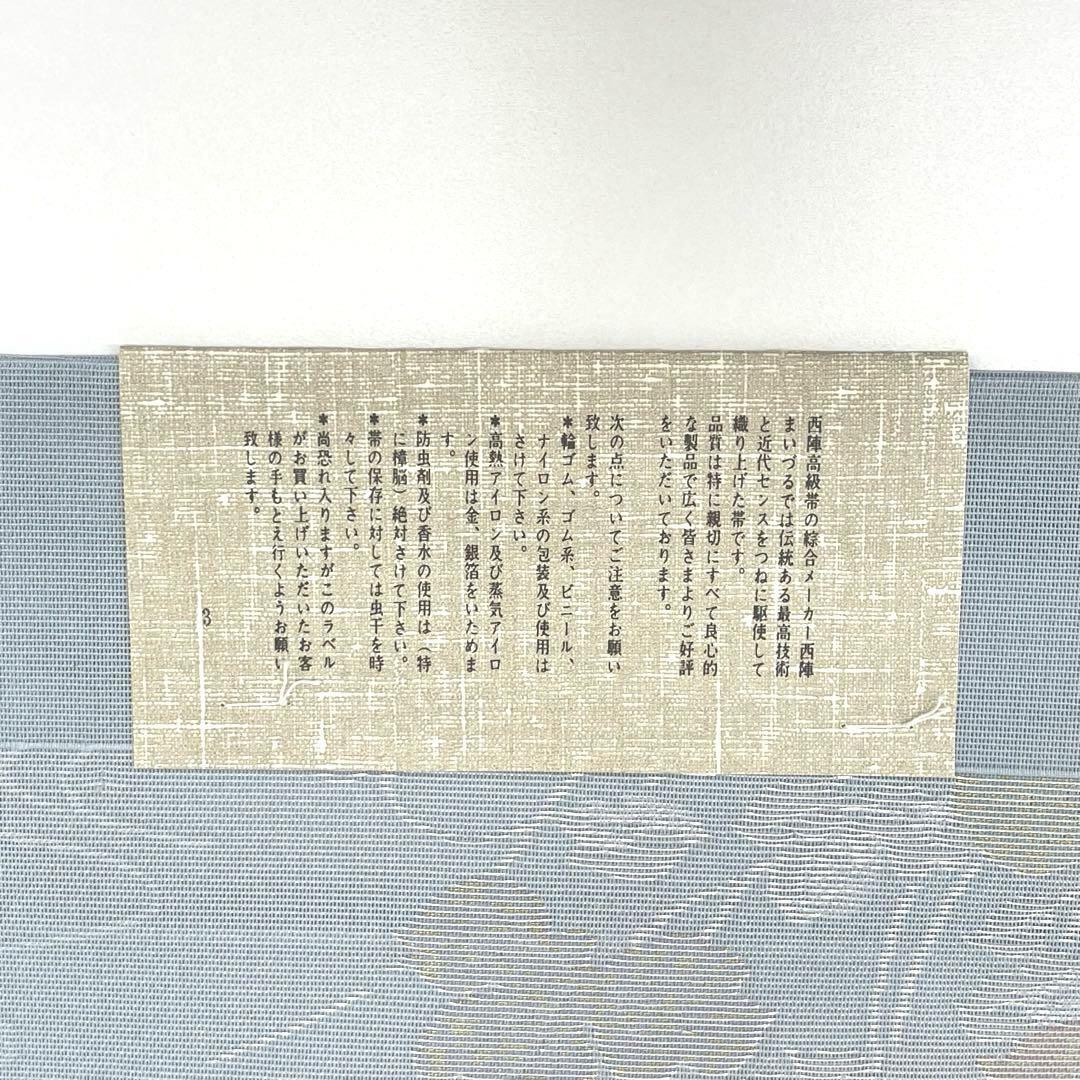 西陣高級帯の綜合メーカー西陣
まいづるでは伝統ある最高技術
と近代センスをつねに駆使して
織り上げた帯です。
品質は特に親切にすべて良心的
な製品で広く皆さまよりご好評
をいただいております。
次の点についてご注意をお願い
致します。
＊輪ゴム、ゴム系、ビニール、
ナイロン系の包装及び使用は
さけて下さい。
＊高熱アイロン及び蒸気アイロ
ン使用は金、銀箔をいためま
す。
＊防虫剤及び香水の使用は（特
に樟脳）絶対さけて下さい。
＊帯の保存に対しては虫干を時
々して下さい。
＊尚恐れ入りますがこのラベル
がお買い上げいただいたお客
様の手もとえ行くようお願い
致します。
3